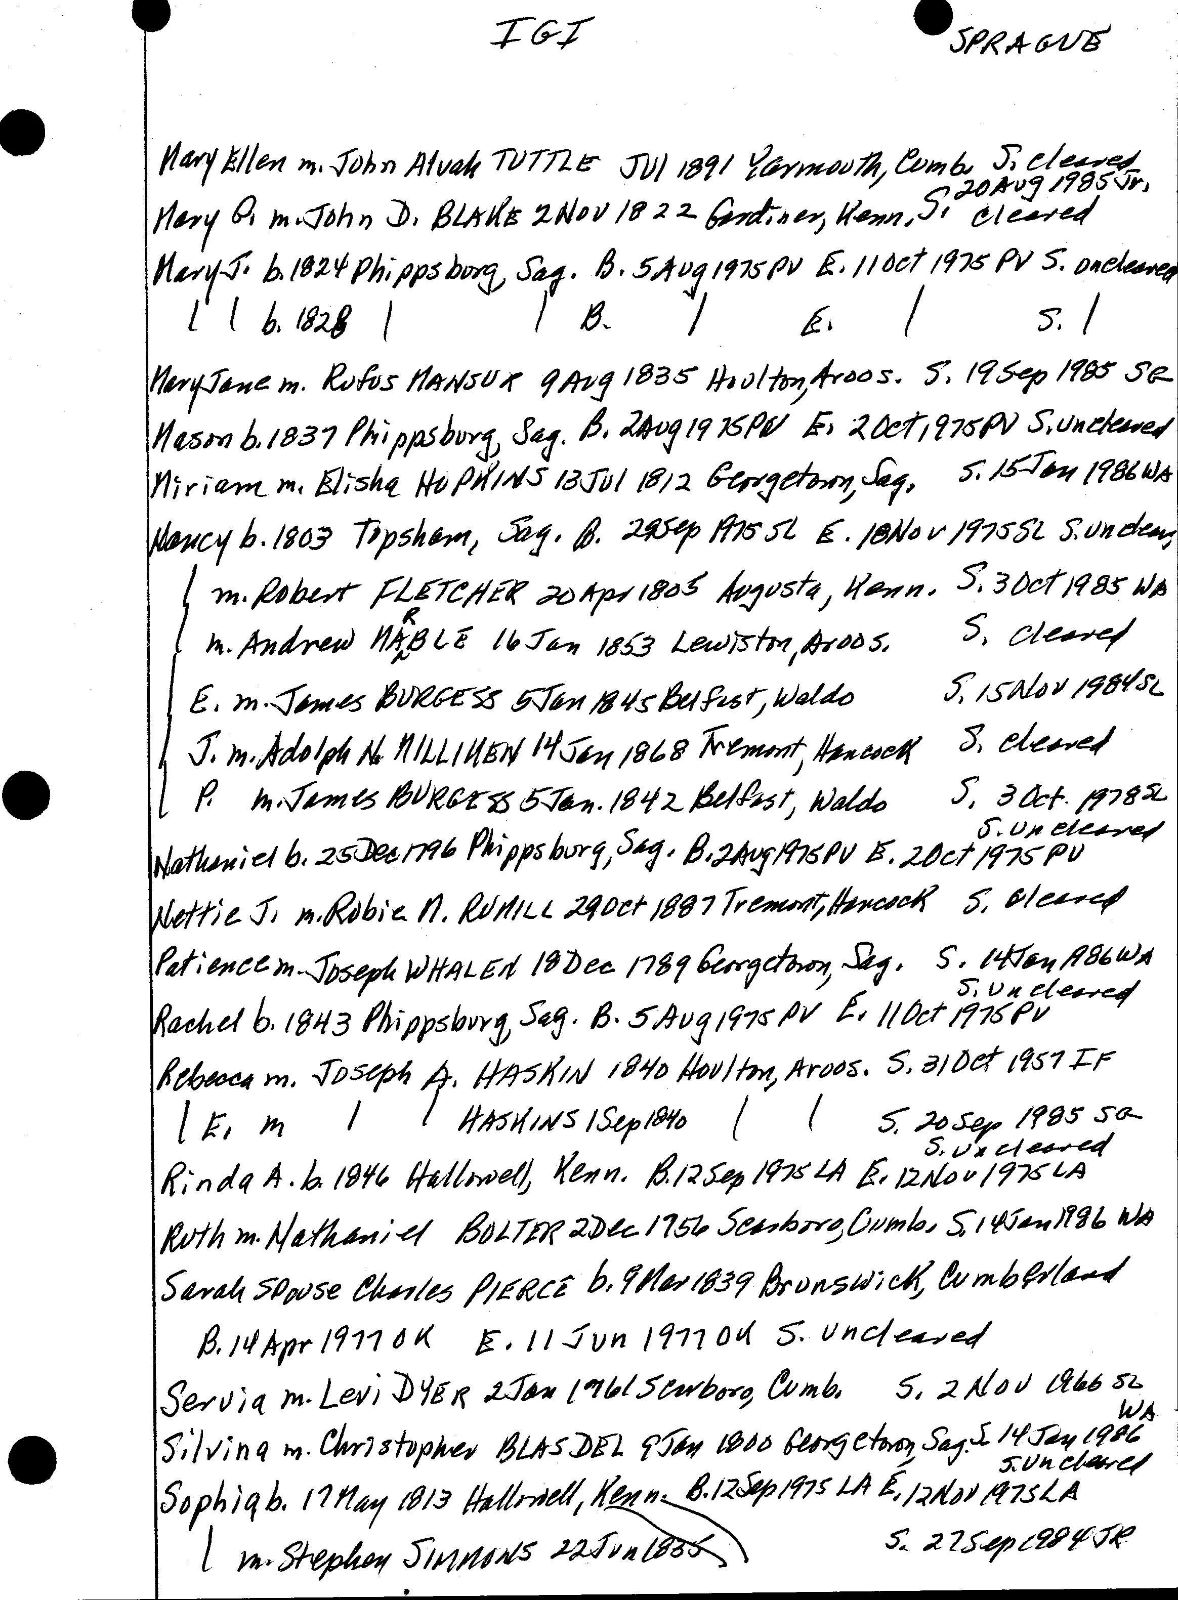 IGI
SPRAGUE
Mary Ellen m. John Alvah TUTTLE JUl 1891 Yarmouth, Cumb. S. cleared
20 Aug 1985 Jr.
Mary O. m. John D. BLAKE 2 Nov 1822 Gardiner, Kenn. S. cleared
Mary J. b. 1824 Phippsburg, Sag. B. 5 Aug 1975 PV E. 11 Oct 1975 PV S. uncleared
| | b. 1828 | | B. | E. | S. |
Mary Jane m. Rufus MANSUR 9 Aug 1835 Houlton, Aroos. S. 19 Sep 1985 SG
Mason b. 1837 Phippsburg, Sag. B. 2 Aug 1975 PV E. 2 Oct 1975 PV S. uncleared
Miriam m. Elisha HOPKINS 13 Jul 1812 Georgetown, Sag. S. 15 Jan 1986 WA
Nancy b. 1803 Topsham, Sag. B. 29 Sep 1975 SL E. 18 Nov 1975 SL S. unclear,
m. Robert FLETCHER 20 Apr 1805 Augusta, Kenn. S. 3 Oct 1985 WA
R
m. Andrew MABLE 16 Jan 1853 Lewiston, Aroos. S. cleared
E. m. James BURGESS 5 Jan 1845 Belfast, Waldo S. 15 Nov 1984 SL
J. m. Adolph N. MILLIKEN 14 Jan 1868 Tremont, Hancock S. cleared
P. m. James BURGESS 5 Jan. 1842 Belfast, Waldo S. 3 Oct. 1978 SL
S. uncleared
Nathaniel b. 25 Dec 1796 Phippsburg, Sag. B. 2 Aug 1975 PV E. 2 Oct 1975 PV
Nettie J. m. Robie M. RUMILL 29 Oct 1887 Tremont, Hancock S. cleared
Patience m. Joseph WHALEN 18 Dec 1789 Georgetown, Sag. S. 14 Jan 1986 WA
S. uncleared
Rachel b. 1843 Phippsburg, Sag. B. 5 Aug 1975 PV E. 11 Oct 1975 PV
Rebecca m. Joseph A. HASKIN 1840 Houlton, Aroos. S. 31 Oct 1957 IF
| E. m | | HASKINS 1 Sep 1840 | | S. 20 Sep 1985 SG
S. uncleared
Rinda A. b. 1846 Hallowell, Kenn. B. 12 Sep 1975 LA E. 12 Nov 1975 LA
Ruth m. Nathaniel BOLTER 2 Dec 1756 Scarboro, Cumb. S. 14 Jan 1986 WA
Sarah SPOUSE Charles PIERCE b. 9 Mar 1839 Brunswick, Cumberland
B. 14 Apr 1977 OK E. 11 Jun 1977 OK S. uncleared
Servia m. Levi DYER 2 Jan 1761 Scarboro, Cumb. S. 2 Nov 1966 SL
WA
Silvina m. Christopher BLASDEL 9 Jan 1800 Georgetown, Sag. S. 14 Jan 1986
S. uncleared
Sophia b. 17 May 1813 Hallowell, Kenn. B. 12 Sep 1975 LA E. 12 Nov 1975 LA
| m. Stephen SIMMONS 22 Jun 1835 S. 27 Sep 1984 JR